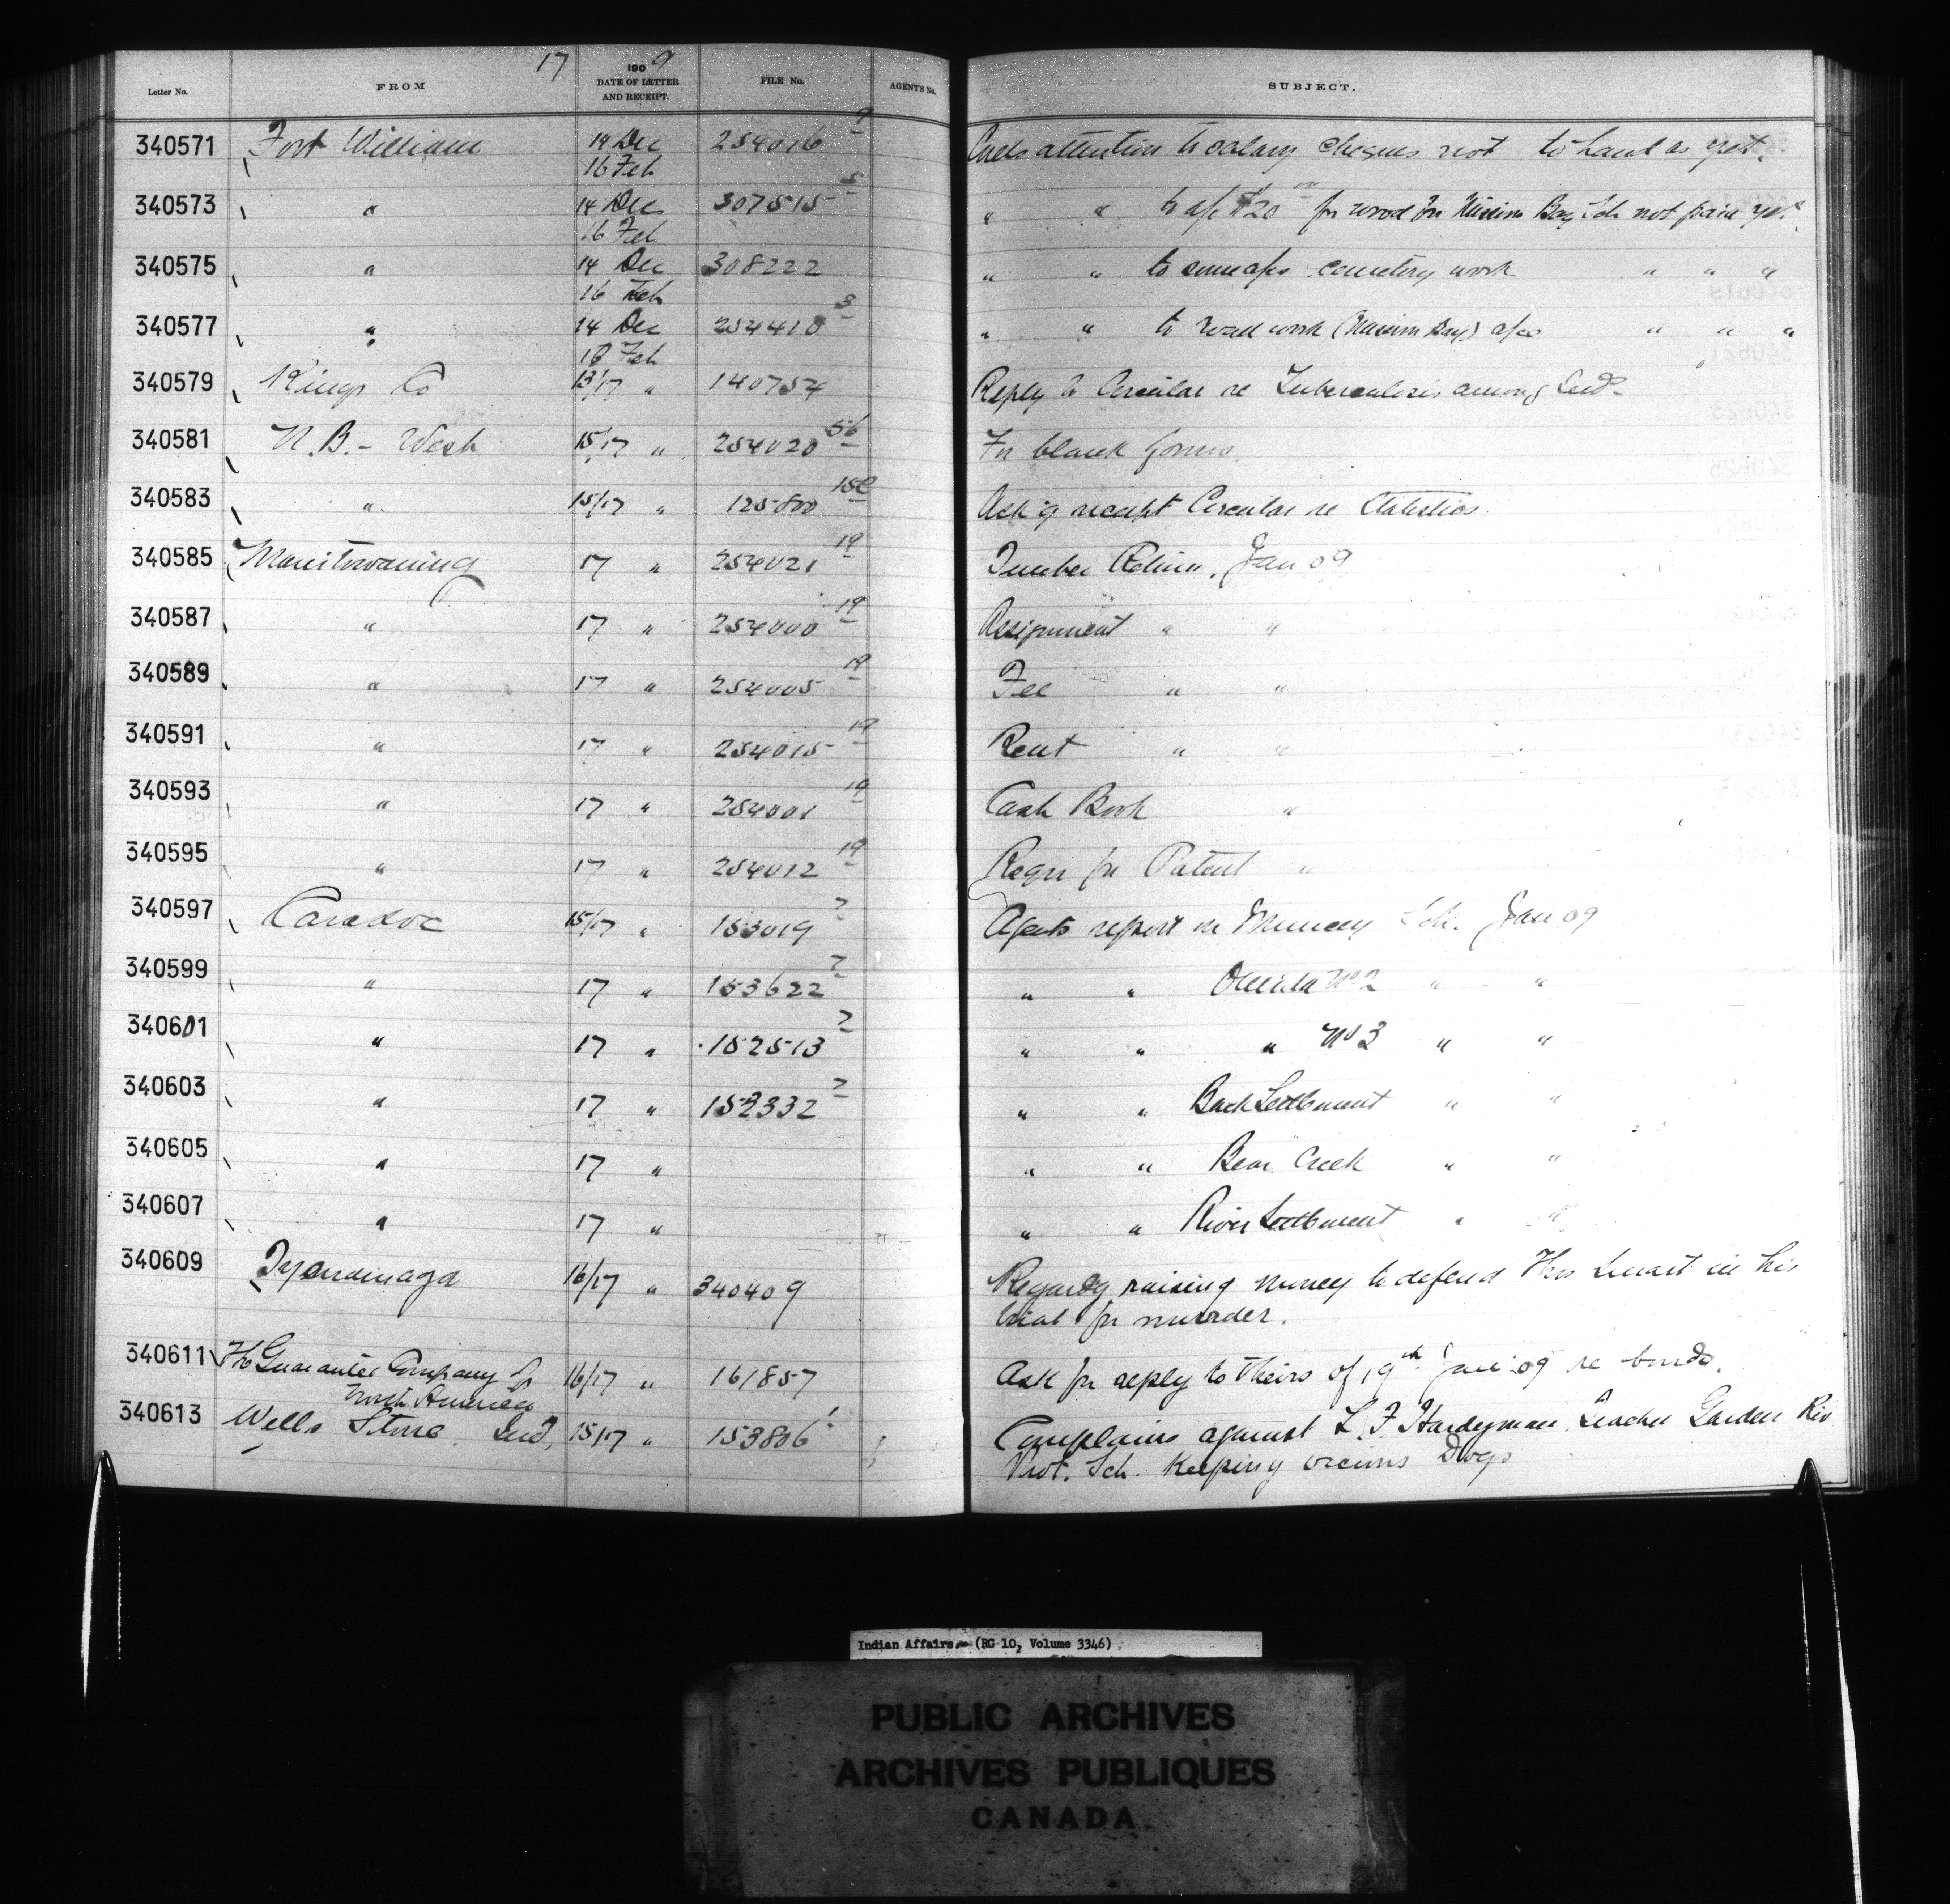 17
1909
Letter No. FROM DATE OF LETTER AND RECEIPT. FILE No. AGENTS No. SUBJECT.
340571 Fort William 14 Dec 254016 Calls attention to salary cheques not to hand as yet.
16 Feb
340573 " 14 Dec 307515 5 " " to a/c $20 for wood for Mission Bay Sch not paid yet
16 Feb
340575 " 14 Dec 308222 " " to cemetery work " " "
16 Feb
340577 " 14 Dec 254410 3 " " to road work (Mission Bay) a/cs " " "
16 Feb
340579 Kings Co 13/17 " 140754 Reply to Circular re Tuberculosis among Inds
340581 N.B. - West 15/17 " 254020 56 For blank forms
340583 " 15/17 " 125800 Ack'g receipt Circular re Statistics.
340585 Manitowaning 17 " 254021 19 Timber Return, Jan 09
340587 " 17 " 254000 19 Assignment " "
340589 " 17 " 254005 19 Fee " "
340591 " 17 " 254015 19 Rent " "
340593 " 17 " 254001 19 Cash Book "
340595 " 17 " 254012 19 Requ for Patent "
340597 Caradoc 15/17 " 153019 2 Agents report on Muncey Sch. Jan 09
340599 " 17 " 153622 2 " " Oneida No 2 " "
340601 " 17 " 152513 2 " " " No 3 " "
340603 " 17 " 152332 2 " " Back Settlement " "
340605 " 17 " " " Bear Creek " "
340607 " 17 " " " River Settlement " "
340609 Tyendinaga 16/17 " 340409 Regardg raising money to defend Thos in his
trial for murder.
340611 The Guarantee Company of 16/17 " 161857 Ask for reply to theirs of 19th Jan 09 re bonds.
North America
340613 Wells Stone Ind. 15/17 " 153806 1 Complains against L. F. Hardyman Teacher Garden Riv
Prot. Sch. keeping vicious Dogs
Indian Affairs. (RG 10, Volume 3346)
PUBLIC ARCHIVES
ARCHIVES PUBLIQUES
CANADA